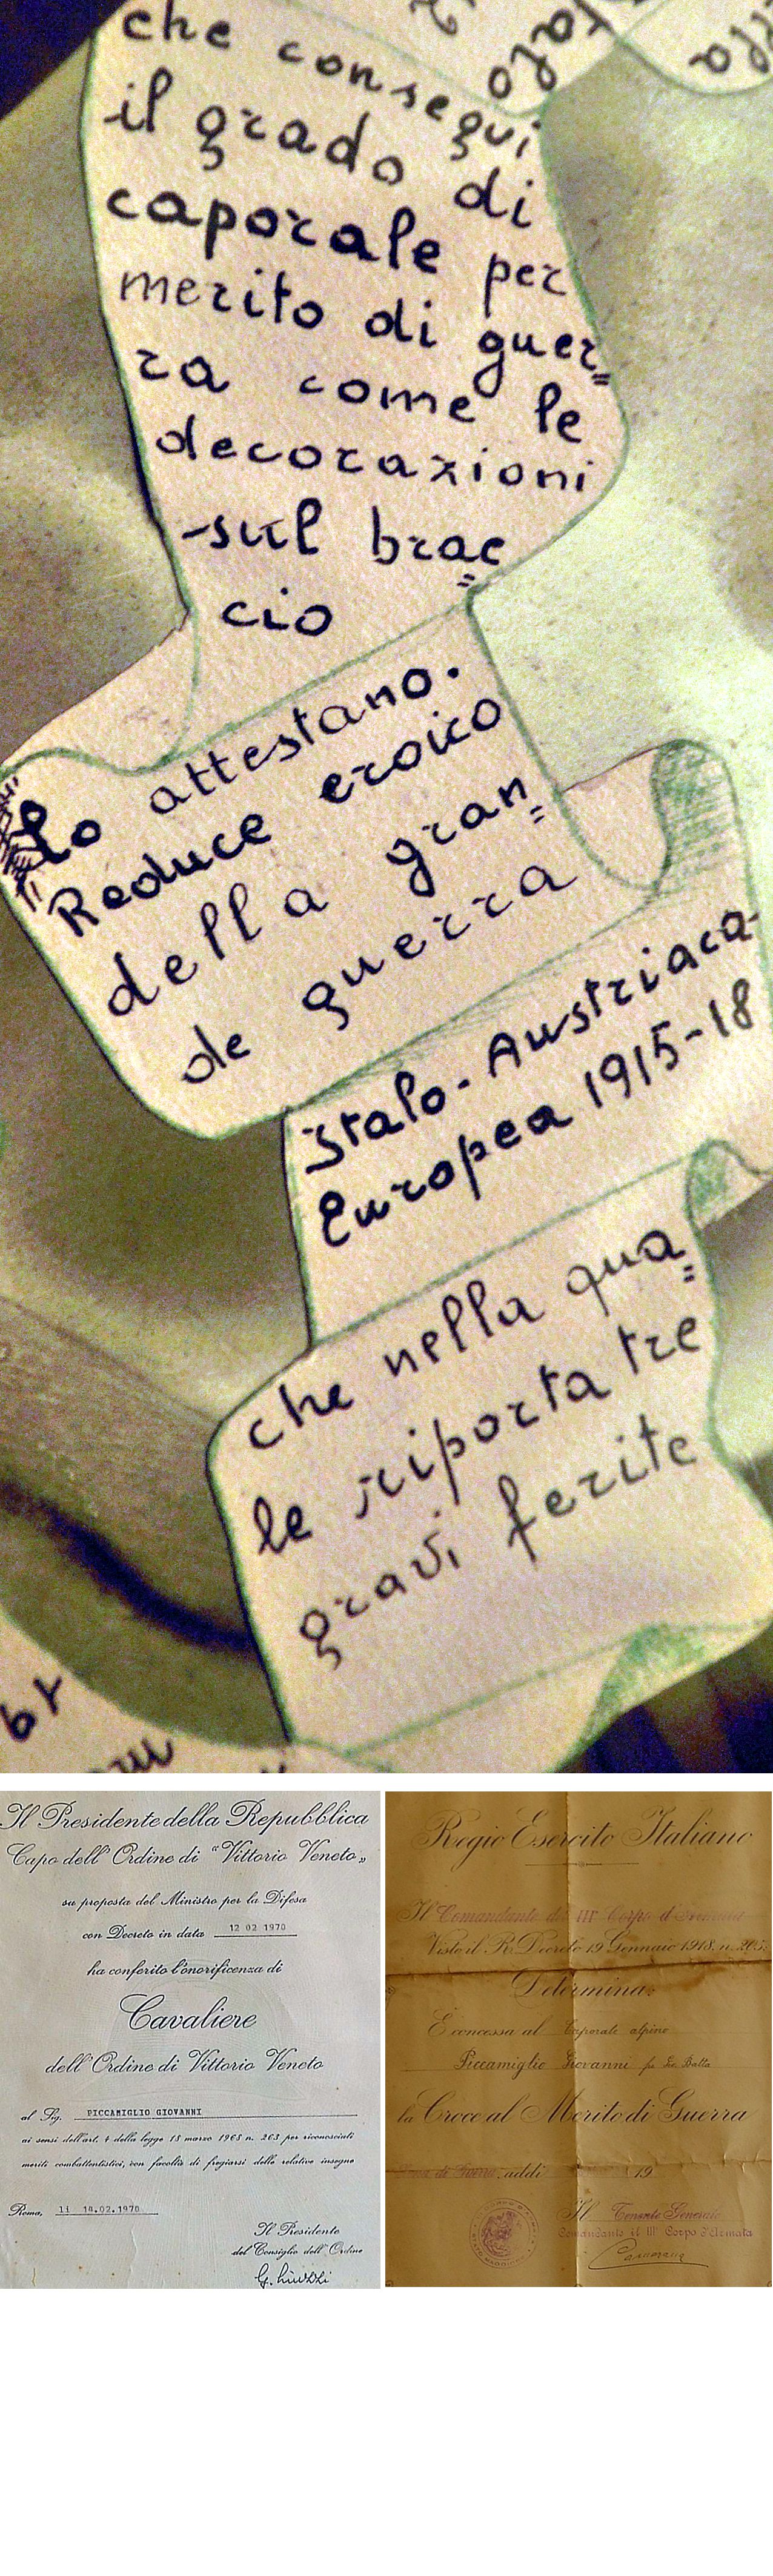 che conseguì
il grado di
caporale per
merito di guer=
ra come le
decorazioni
sul brac=
cio
lo attestano.
Reduce eroico
della gran=
de guerra
Italo-Austriaca-
Europea 1915-18
che nella qua=
le riporta tre
gravi ferite
Il Presidente della Repubblica
Capo dell'Ordine di "Vittorio Veneto"
su proposta del Ministro per la Difesa
con Decreto in data 12 02 1970
ha conferito l'onorificenza di
Cavaliere
dell'Ordine di Vittorio Veneto
al Sig. PICCAMIGLIO GIOVANNI
ai sensi dell'art. 4 della legge 18 marzo 1968 n. 263 per riconosciuti
meriti combattentistici, con facoltà di fregiarsi delle relative insegne
Roma, li 14.02.1970
Il Presidente
del Consiglio dell'Ordine
Regio Esercito Italiano
Il Comandante del III Corpo d'Armata
Visto il R. Decreto 19 Gennaio 1918. n. 205.
Determina:
È concessa al Caporale alpino
Piccamiglio Giovanni fu Gio Batta
la Croce al Merito di Guerra
Zona di Guerra, addì 19
Il Tenente Generale
Comandante il III Corpo d'Armata